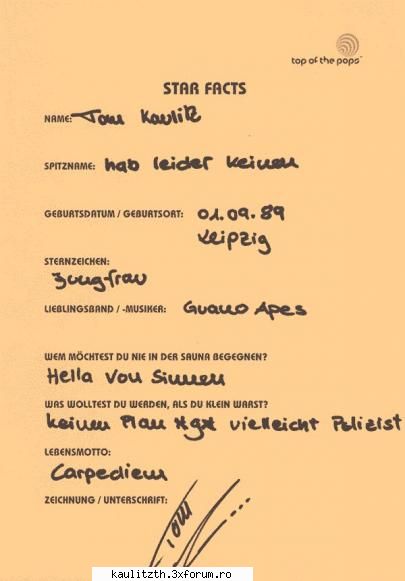 top of the pops™
STAR FACTS
NAME: Tom Kaulitz
SPITZNAME: hab leider keinen
GEBURTSDATUM / GEBURTSORT: 01.09.89
Leipzig
STERNZEICHEN:
Jungfrau
LIEBLINGSBAND / -MUSIKER: Guano Apes
WEM MÖCHTEST DU NIE IN DER SAUNA BEGEGNEN?
Hella Von Sinnen
WAS WOLLTEST DU WERDEN, ALS DU KLEIN WARST?
keinen Plan vielleicht Polizist
LEBENSMOTTO:
Carpediem
ZEICHNUNG / UNTERSCHRIFT:
Tom
kaulitzth.3xforum.ro